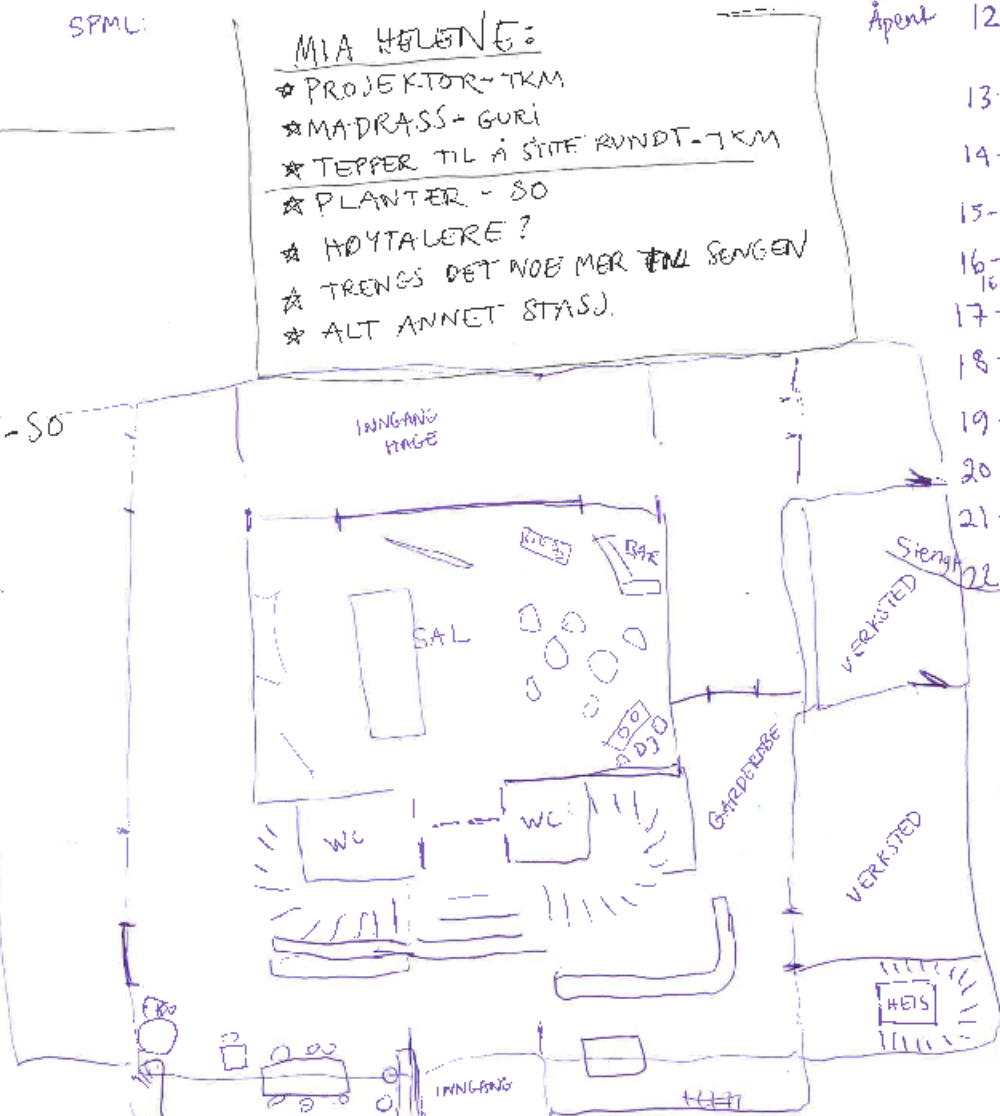 SPML:
MIA HELENE:
☆ PROJEKTOR - TKM
☆ MADRASS - GURI
☆ TEPPER TIL Å STITE RUNDT - TKM
☆ PLANTER - SO
☆ HØYTALERE?
☆ TRENGS DET NOE MER TIL SENGEN
☆ ALT ANNET STASJ.
Åpent 12
13-
14-
15-
16-
16
17-
18-
19-
20
21-
22
-SO
INNGANG
HAGE
BAR
SAL
DJ
WC
WC
GARDEROBE
VERKSTED
VERKSTED
HEIS
INNGANG